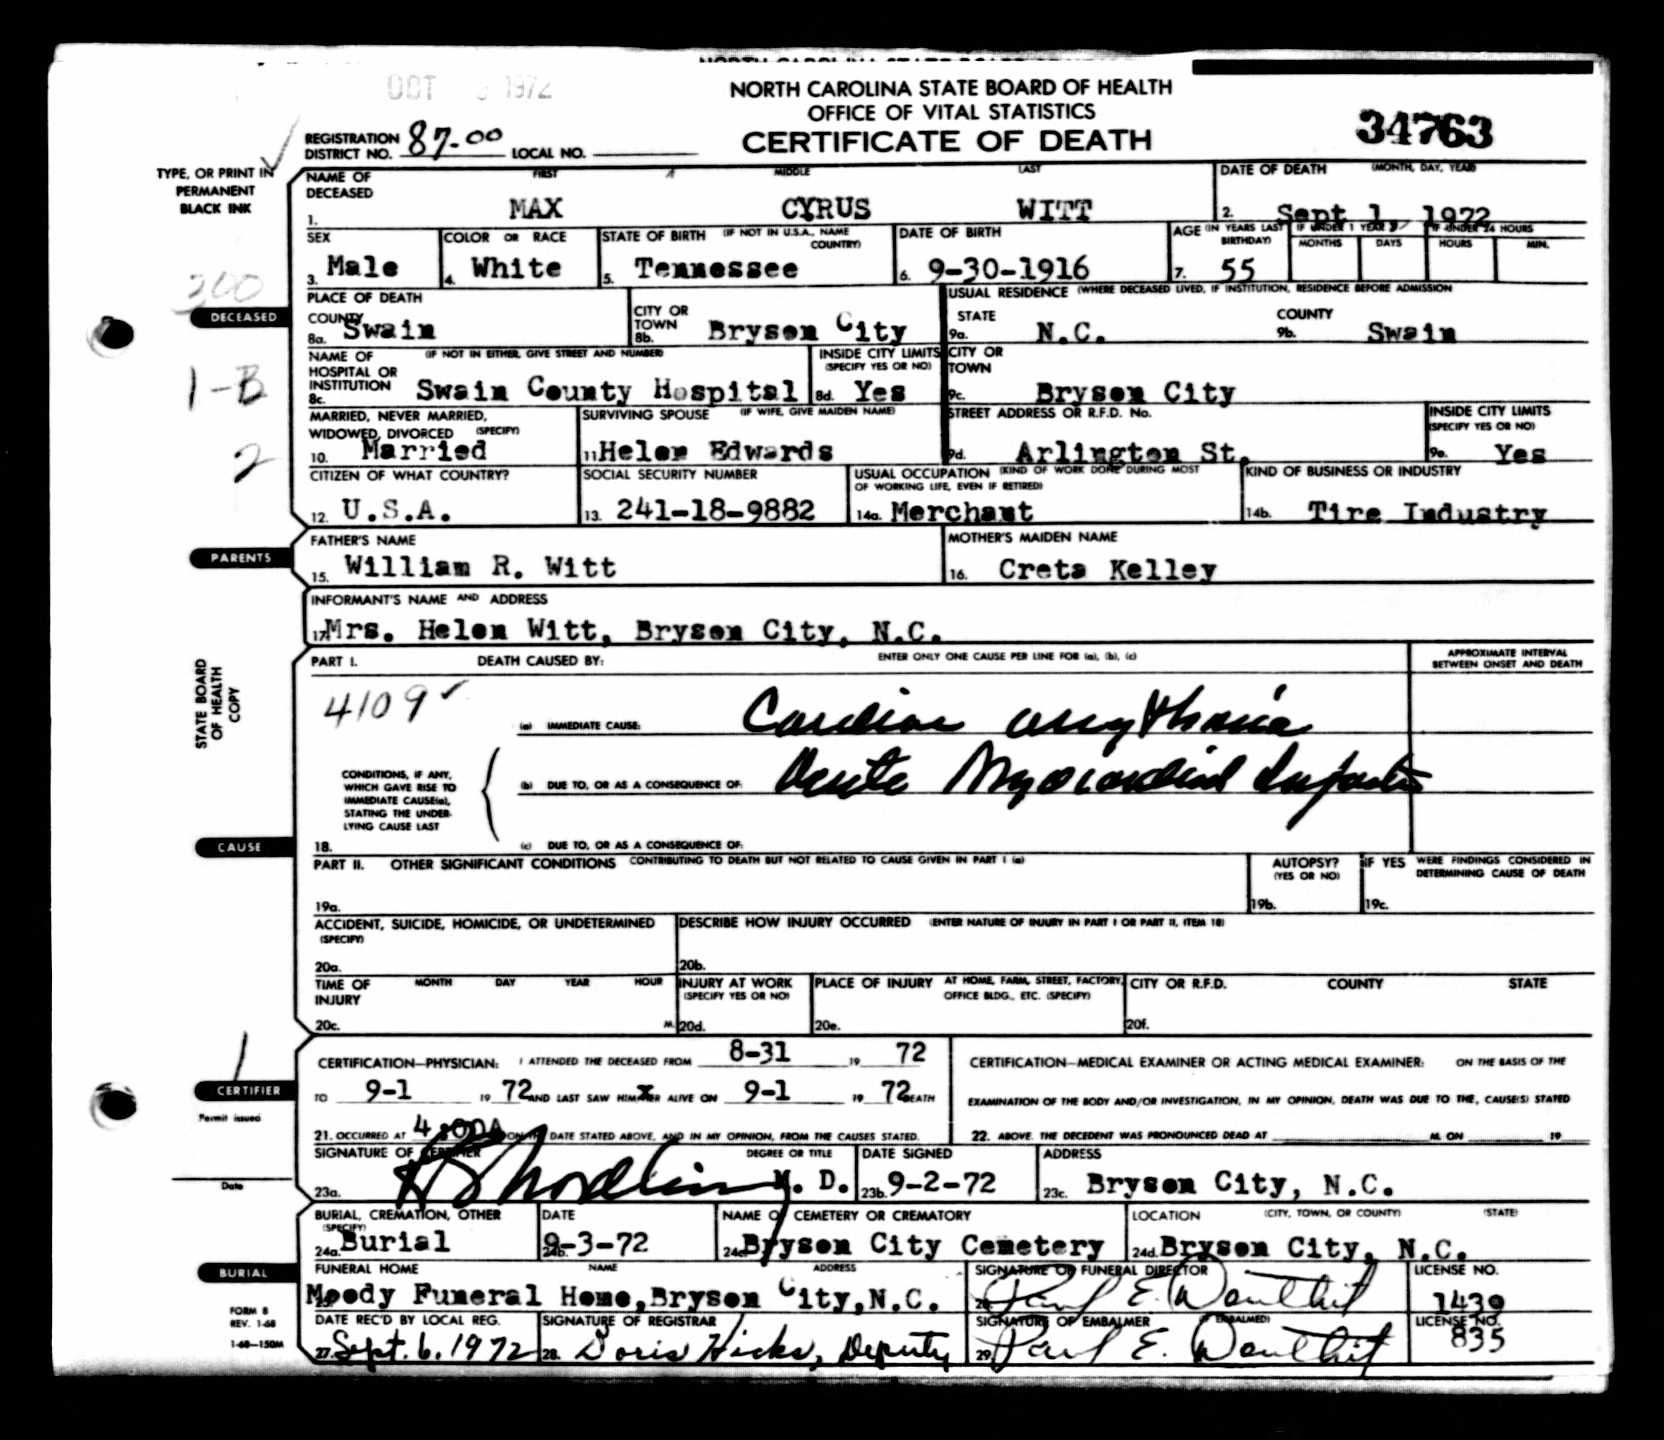 OCT 1972
NORTH CAROLINA STATE BOARD OF HEALTH
OFFICE OF VITAL STATISTICS
CERTIFICATE OF DEATH
34763
REGISTRATION DISTRICT NO. 87-00 LOCAL NO.
TYPE, OR PRINT IN
PERMANENT
BLACK INK
NAME OF DECEASED FIRST MIDDLE LAST DATE OF DEATH (MONTH, DAY, YEAR)
1. MAX CYRUS WITT 2. Sept 1, 1972
SEX COLOR OR RACE STATE OF BIRTH (IF NOT IN U.S.A., NAME COUNTRY) DATE OF BIRTH AGE (IN YEARS LAST BIRTHDAY) IF UNDER 1 YEAR MONTHS DAYS IF UNDER 24 HOURS HOURS MIN.
3. Male 4. White 5. Tennessee 6. 9-30-1916 7. 55
300
DECEASED
PLACE OF DEATH USUAL RESIDENCE (WHERE DECEASED LIVED, IF INSTITUTION, RESIDENCE BEFORE ADMISSION
COUNTY 8a. Swain CITY OR TOWN 8b. Bryson City STATE 9a. N.C. COUNTY 9b. Swain
NAME OF HOSPITAL OR INSTITUTION (IF NOT IN EITHER, GIVE STREET AND NUMBER) INSIDE CITY LIMITS (SPECIFY YES OR NO) CITY OR TOWN
8c. Swain County Hospital 8d. Yes 9c. Bryson City
1-B
MARRIED, NEVER MARRIED, WIDOWED, DIVORCED (SPECIFY) SURVIVING SPOUSE (IF WIFE, GIVE MAIDEN NAME) STREET ADDRESS OR R.F.D. No. INSIDE CITY LIMITS (SPECIFY YES OR NO)
10. Married 11. Helen Edwards 9d. Arlington St. 9e. Yes
2
CITIZEN OF WHAT COUNTRY? SOCIAL SECURITY NUMBER USUAL OCCUPATION (KIND OF WORK DONE DURING MOST OF WORKING LIFE, EVEN IF RETIRED) KIND OF BUSINESS OR INDUSTRY
12. U.S.A. 13. 241-18-9882 14a. Merchant 14b. Tire Industry
PARENTS
FATHER'S NAME MOTHER'S MAIDEN NAME
15. William R. Witt 16. Creta Kelley
INFORMANT'S NAME AND ADDRESS
17. Mrs. Helen Witt, Bryson City, N.C.
STATE BOARD
OF HEALTH
COPY
PART I. DEATH CAUSED BY: ENTER ONLY ONE CAUSE PER LINE FOR (a), (b), (c) APPROXIMATE INTERVAL BETWEEN ONSET AND DEATH
4109
(a) IMMEDIATE CAUSE: Cardiac arrythmia
CONDITIONS, IF ANY,
WHICH GAVE RISE TO
IMMEDIATE CAUSE(a),
STATING THE UNDER-
LYING CAUSE LAST
(b) DUE TO, OR AS A CONSEQUENCE OF: Acute Myocardial Infarction
CAUSE
18. (c) DUE TO, OR AS A CONSEQUENCE OF:
PART II. OTHER SIGNIFICANT CONDITIONS CONTRIBUTING TO DEATH BUT NOT RELATED TO CAUSE GIVEN IN PART I (a) AUTOPSY? (YES OR NO) IF YES WERE FINDINGS CONSIDERED IN DETERMINING CAUSE OF DEATH
19a. 19b. 19c.
ACCIDENT, SUICIDE, HOMICIDE, OR UNDETERMINED (SPECIFY) DESCRIBE HOW INJURY OCCURRED (ENTER NATURE OF INJURY IN PART I OR PART II, ITEM 18)
20a. 20b.
TIME OF INJURY MONTH DAY YEAR HOUR INJURY AT WORK (SPECIFY YES OR NO) PLACE OF INJURY AT HOME, FARM, STREET, FACTORY, OFFICE BLDG., ETC. (SPECIFY) CITY OR R.F.D. COUNTY STATE
20c. M. 20d. 20e. 20f.
CERTIFIER
Permit issued
Date
CERTIFICATION—PHYSICIAN: I ATTENDED THE DECEASED FROM 8-31 19 72
TO 9-1 19 72 AND LAST SAW HIM/HER ALIVE ON 9-1 19 72 DEATH
21. OCCURRED AT 4:00A ON THE DATE STATED ABOVE, AND IN MY OPINION, FROM THE CAUSES STATED.
CERTIFICATION—MEDICAL EXAMINER OR ACTING MEDICAL EXAMINER: ON THE BASIS OF THE
EXAMINATION OF THE BODY AND/OR INVESTIGATION, IN MY OPINION, DEATH WAS DUE TO THE, CAUSE(S) STATED
22. ABOVE. THE DECEDENT WAS PRONOUNCED DEAD AT M. ON 19
SIGNATURE OF CERTIFIER DEGREE OR TITLE DATE SIGNED ADDRESS
23a. M. D. 23b. 9-2-72 23c. Bryson City, N.C.
BURIAL, CREMATION, OTHER (SPECIFY) DATE NAME OF CEMETERY OR CREMATORY LOCATION (CITY, TOWN, OR COUNTY) (STATE)
24a. Burial 24b. 9-3-72 24c. Bryson City Cemetery 24d. Bryson City, N.C.
BURIAL
FUNERAL HOME NAME ADDRESS SIGNATURE OF FUNERAL DIRECTOR LICENSE NO.
Moody Funeral Home, Bryson City, N.C. Paul E. Douthit 1439
FORM 8
REV. 1-68
1-68—150M
DATE REC'D BY LOCAL REG. SIGNATURE OF REGISTRAR SIGNATURE OF EMBALMER (IF EMBALMED) LICENSE NO.
27. Sept. 6, 1972 28. Doris Hicks, Deputy 29. Paul E. Douthit 835